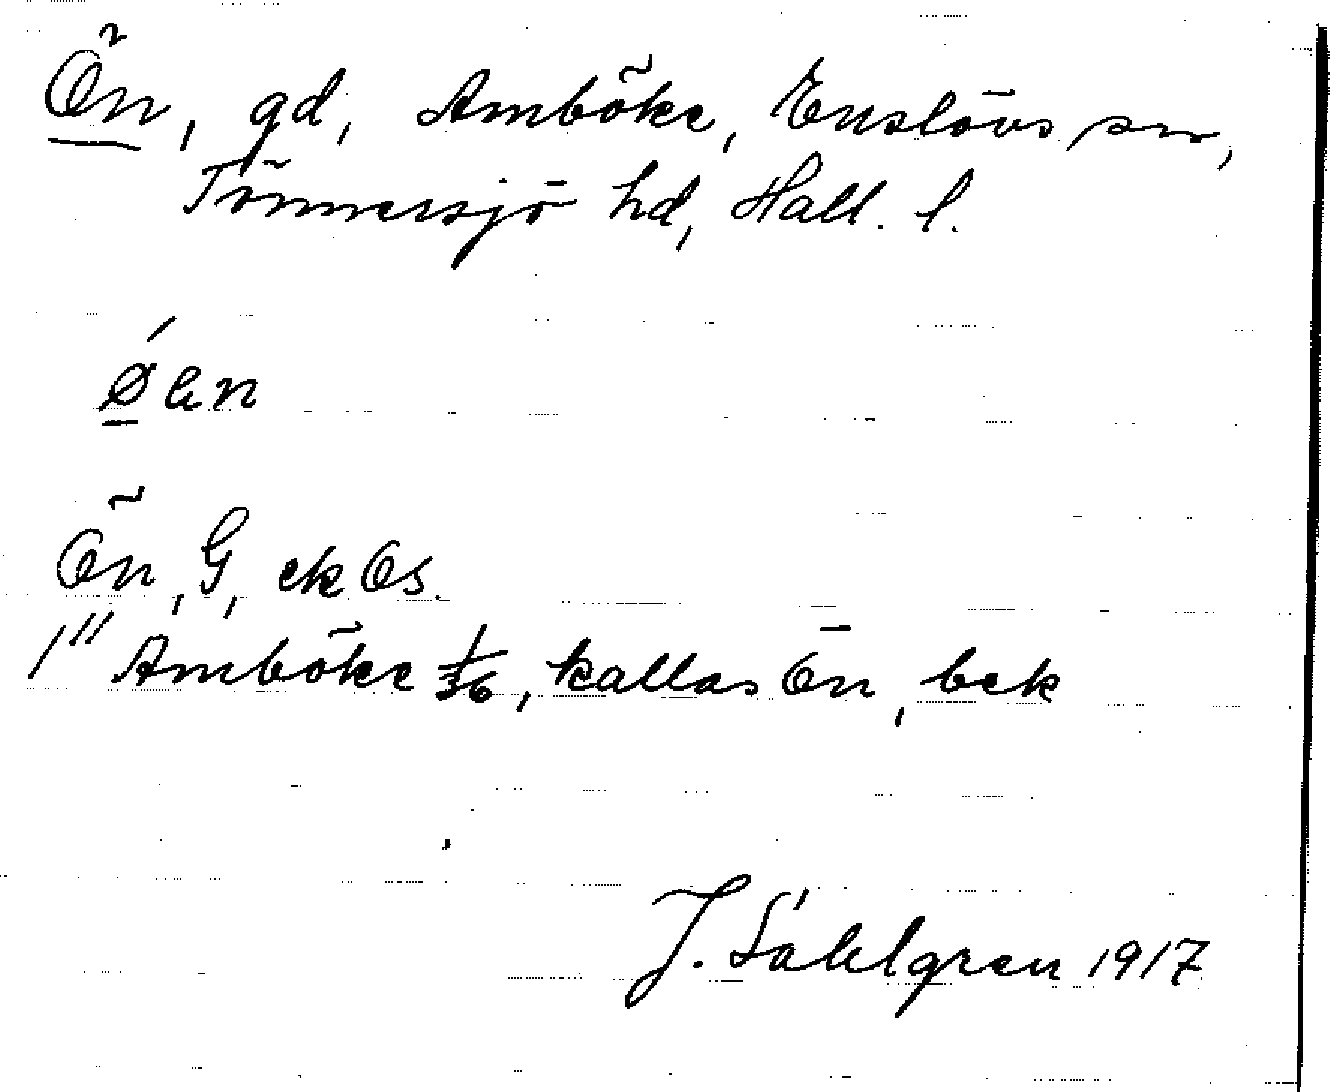 Ön, gd, Amböke, Enslövs sn,
Tönnersjö hd, Hall. l.
Øen
Ön, G, ekôs.
1" Amböke 1/36, kallas Ön, bek
J. Sahlgren 1917